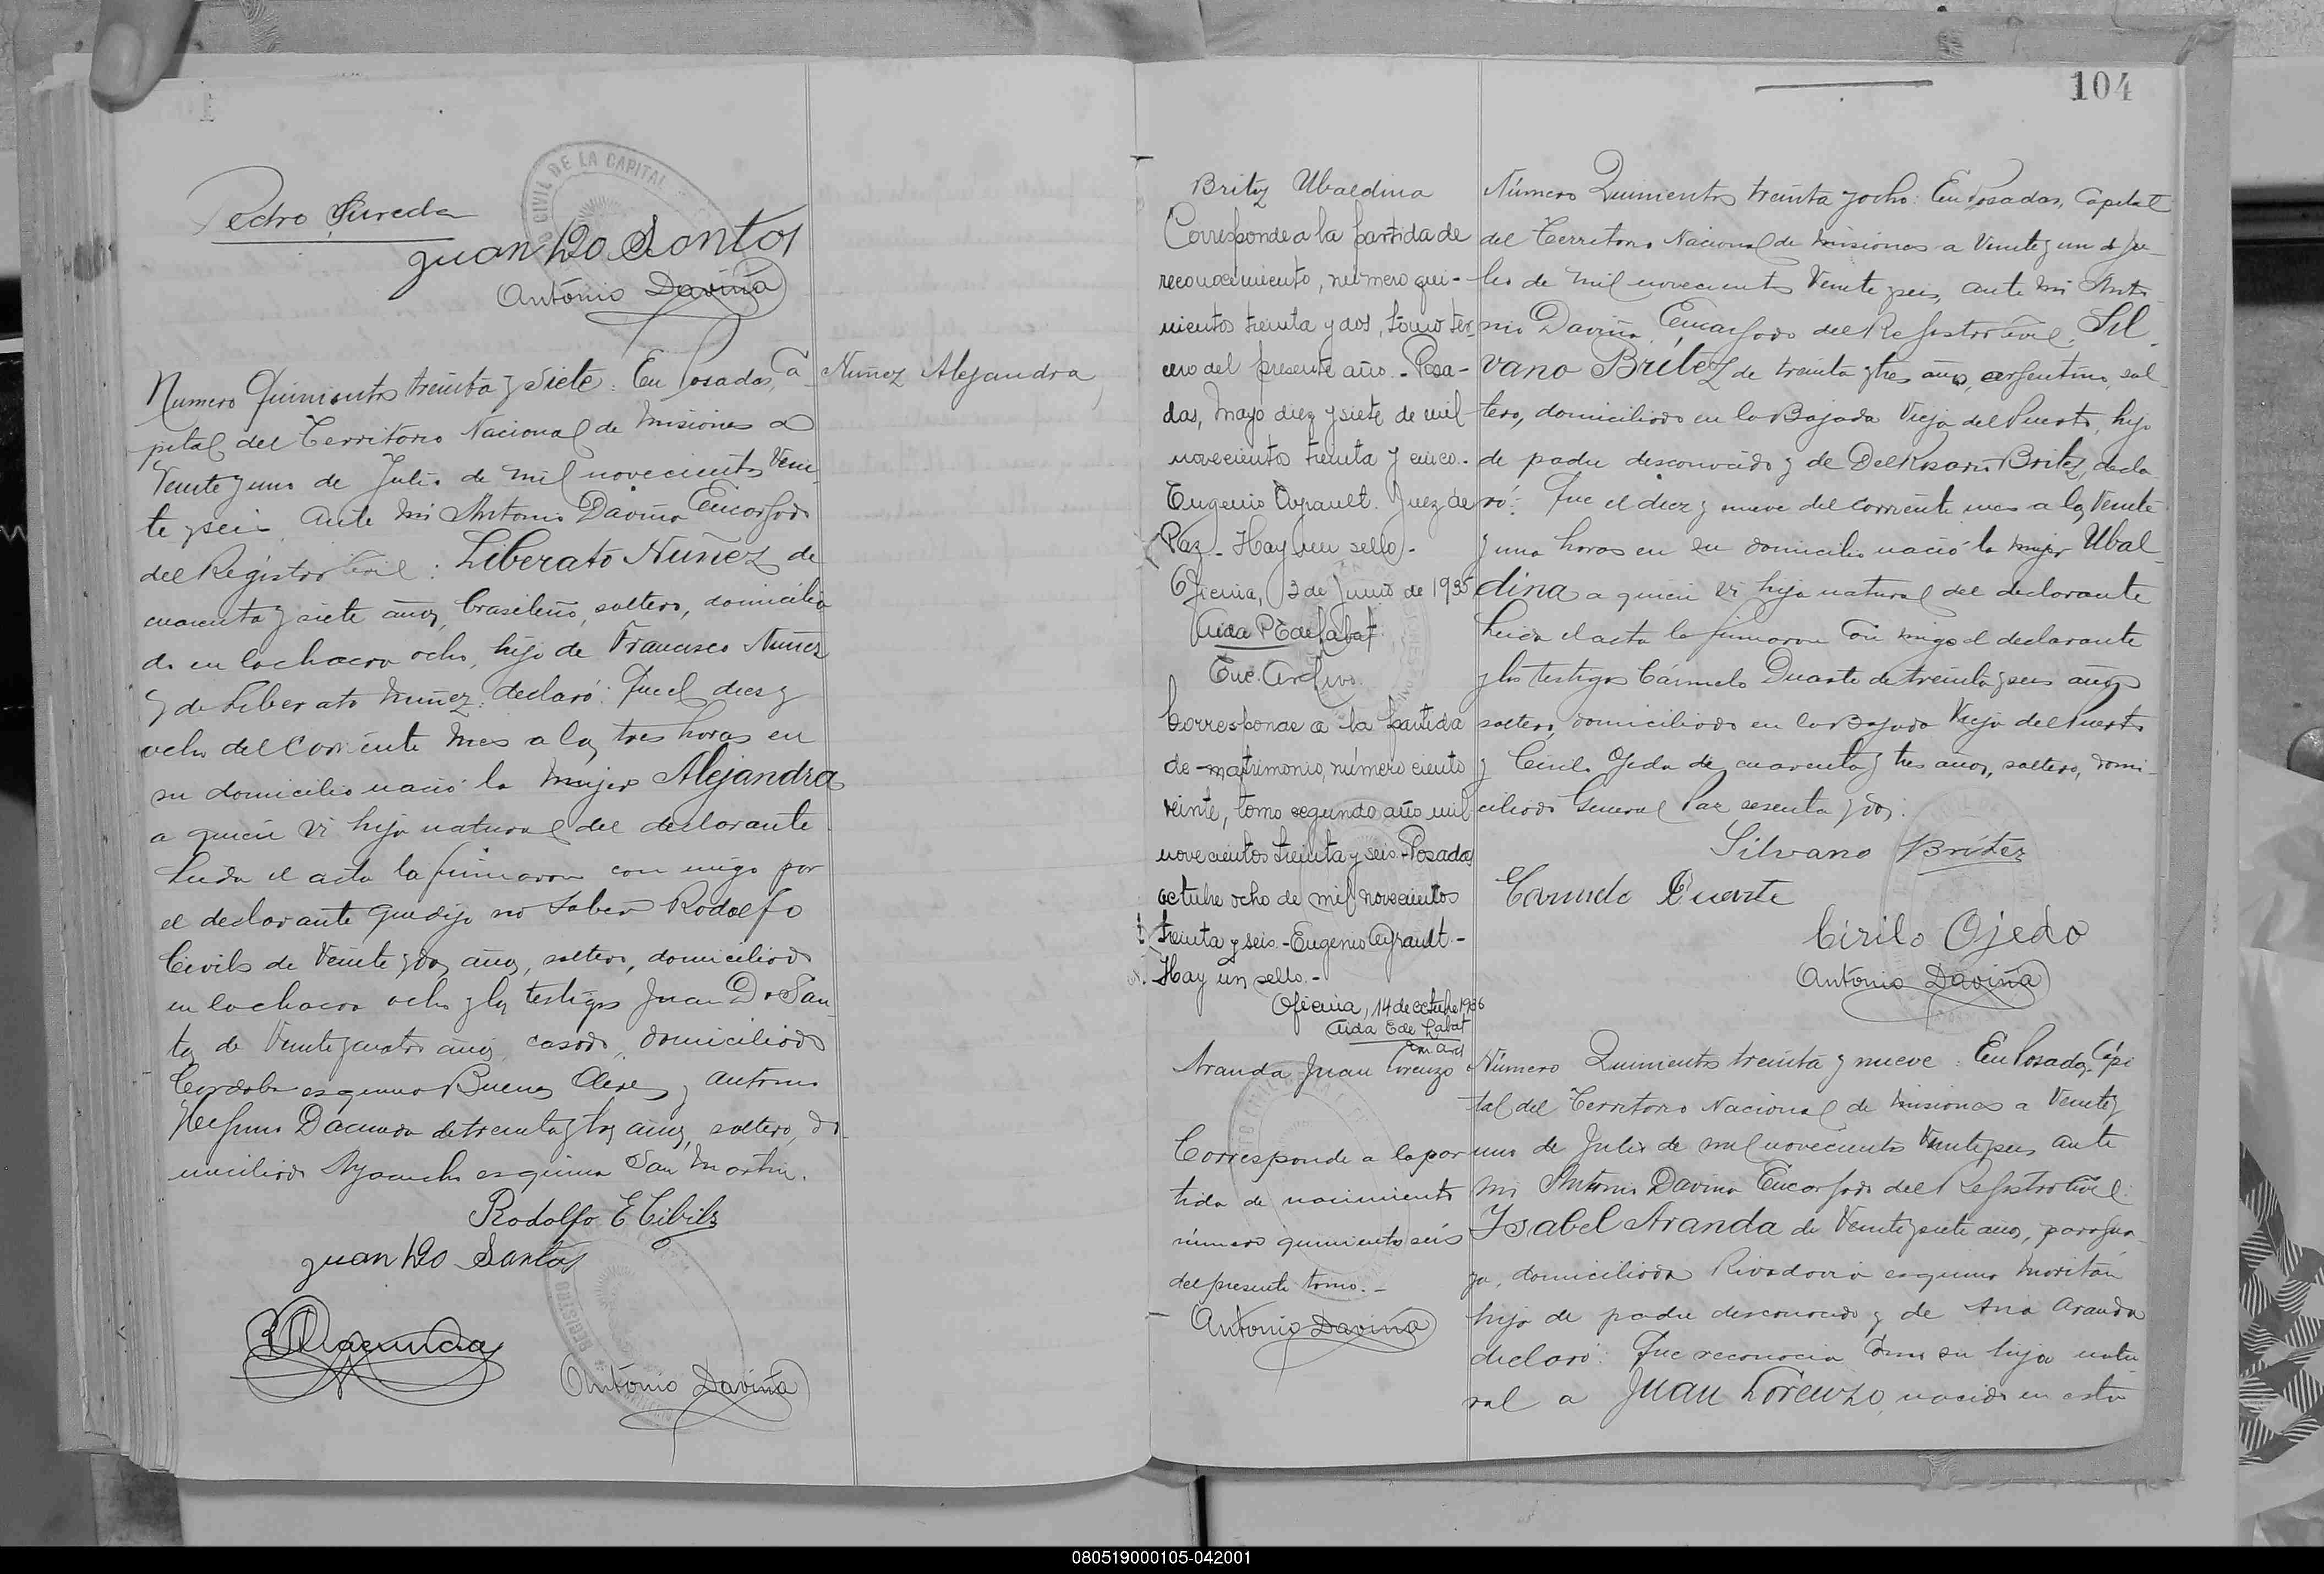 Pedro Sureda
Juan Do Santos
Antonio Daviña
REGISTRO CIVIL DE LA CAPITAL
Nuñez Alejandra
Numero Quinientos treinta y siete: En Posadas, Ca
pital del Territorio Nacional de Misiones a
Veinte y uno de Julio de mil novecientos Vein
te y seis ante mi Antonio Daviña Encargado
del Registro Civil: Liberato Nuñez de
cuarenta y siete años, brasileño, soltero, domicilia
do en la chacra ocho, hijo de Francisco Nuñez
y de Liberato Nuñez: declaró: Que el diez y
ocho del Corriente mes a las tres horas en
su domicilio nació la mujer Alejandra
a quien vi hija natural del declarante
Leida el acta la firmaron con migo por
el declarante que dijo no saber Rodolfo
Civils de Veinte y dos años, soltero, domiciliado
en la chacra ocho y los testigos Juan Do San
tos de Veinte y cuatro años, casado, domiciliado
Cordoba esquina Buenos Aires y Antonio
Dacunda de treinta y tres años, soltero, do
miciliado Ayacucho esquina San Martin.
Rodolfo E Cibils
Juan Do Santos
Dacunda
Antonio Daviña
104
Britez Ubaldina
Corresponde a la partida de
reconocimiento, número qui-
nientos treinta y dos, tomo ter-
cero del presente año.- Posa-
das, Mayo diez y siete de mil
novecientos treinta y cinco.-
Eugenio Ayrault. Juez de
Paz.- Hay un sello.-
Oficina, 3 de Junio de 1935
Aida P E de Labat
Enc. Archivo.
Corresponde a la partida
de matrimonio, número ciento
veinte, tomo segundo año mil
novecientos treinta y seis.-Posadas
octubre ocho de mil novecientos
treinta y seis.-Eugenio Ayrault-
Hay un sello.-
Oficina, 14 de octubre 1936
Aida E de Labat
Número Quinientos treinta y ocho: En Posadas, Capital
del Territorio Nacional de Misiones a Veinte y uno de Ju-
lio de mil novecientos Veinte y seis, ante mi Anto
nio Daviña Encargado del Registro Civil: Sil
vano Britez de treinta y tres años, argentino, sol
tero, domiciliado en la Bajada Vieja del Puerto, hijo
de padre desconocido y de Del Rosario Britez, decla
ró: Que el diez y nueve del corriente mes a las Veinte
y una horas en su domicilio nació la mujer Ubal
dina a quien vi hija natural del declarante
Leida el acta la firmaron con migo el declarante
y los testigos Cármelo Duarte de treinta y seis años
soltero, domiciliado en la Bajada Vieja del Puerto
y Cirilo Ojeda de cuarenta y tres años, soltero, domi-
ciliado General Paz sesenta y dos.
Silvano Britez
Carmelo Duarte
Cirilo Ojeda
Antonio Daviña
Aranda Juan Lorenzo
Corresponde a la par
tida de nacimiento
número quinientos seis
del presente tomo.-
Antonio Daviña
Número Quinientos treinta y nueve: En Posadas, Capi
tal del Territorio Nacional de Misiones a Veinte y
uno de Julio de mil novecientos Veinte y seis ante
mi Antonio Daviña Encargado del Registro Civil:
Ysabel Aranda de Veinte y siete años, paragua
ya, domiciliada Rivadavia esquina
hija de padre desconocido y de Ana Aranda
declaró: Que reconocia como su hijo natu
ral a Juan Lorenzo, nacido en esta
080519000105-042001